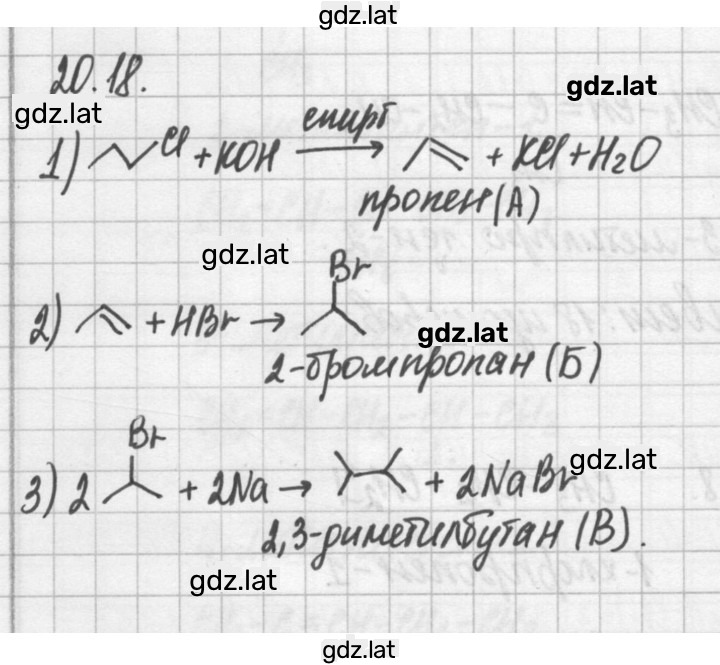 gdz.lat
20.18.
gdz.lat
gdz.lat
1) Cl + KOH спирт → + KCl + H₂O
пропен (А)
gdz.lat
Br
2) + HBr →
gdz.lat
2-бромпропан (Б)
Br
gdz.lat
3) 2 + 2Na → + 2NaBr
2,3-диметилбутан (В).
gdz.lat
gdz.lat